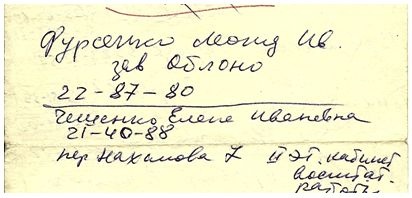 Фурсенко Леонид Ив.
зав Облоно
22-87-80
Чещенко Елена Ивановна
21-40-88
пер Нахимова 7 II эт. кабинет
воспитат.
работы